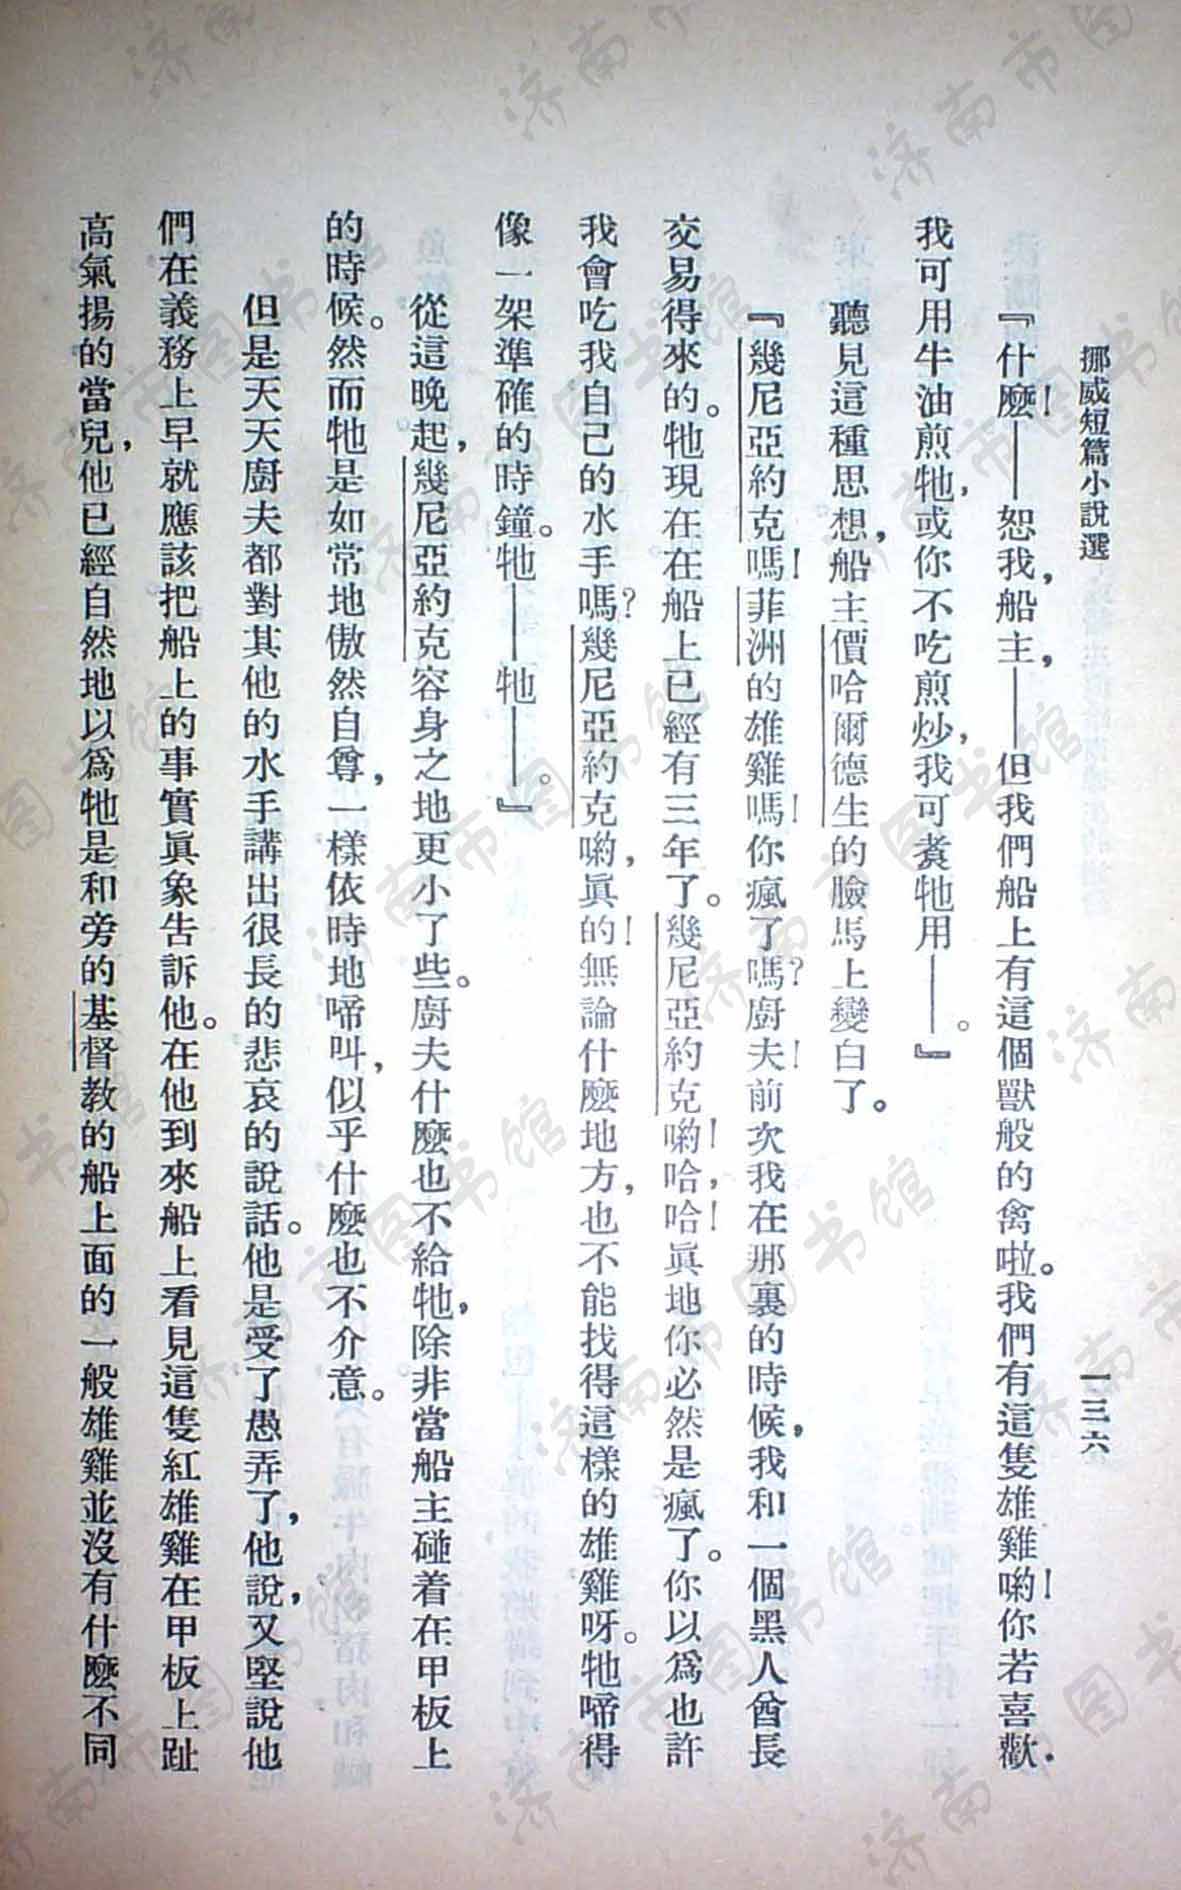 挪威短篇小說選
一三六
『什麼！——恕我，船主，——但我們船上有這個獸般的禽啦。我們有這隻雄雞喲！你若喜歡，
我可用牛油煎牠，或你不吃煎炒，我可煑牠用——。』
聽見這種思想，船主價哈爾德生的臉馬上變白了。
『幾尼亞約克嗎！菲洲的雄雞嗎！你瘋了嗎？廚夫！前次我在那裏的時候，我和一個黑人酋長
交易得來的。牠現在在船上已經有三年了。幾尼亞約克喲！哈，哈！眞地你必然是瘋了。你以爲也許
我會吃我自己的水手嗎？幾尼亞約克喲，眞的！無論什麼地方，也不能找得這樣的雄雞呀。牠啼得
像一架準確的時鐘。牠——牠——。』
從這晚起，幾尼亞約克容身之地更小了些。廚夫什麼也不給牠，除非當船主碰着在甲板上
的時候。然而牠是如常地傲然自尊，一樣依時地啼叫，似乎什麼也不介意。
但是天天廚夫都對其他的水手講出很長的悲哀的說話。他是受了愚弄了，他說，又堅說他
們在義務上早就應該把船上的事實眞象告訴他。在他到來船上看見這隻紅雄雞在甲板上趾
高氣揚的當兒，他已經自然地以爲牠是和旁的基督教的船上面的一般雄雞並沒有什麼不同
济南市图书馆